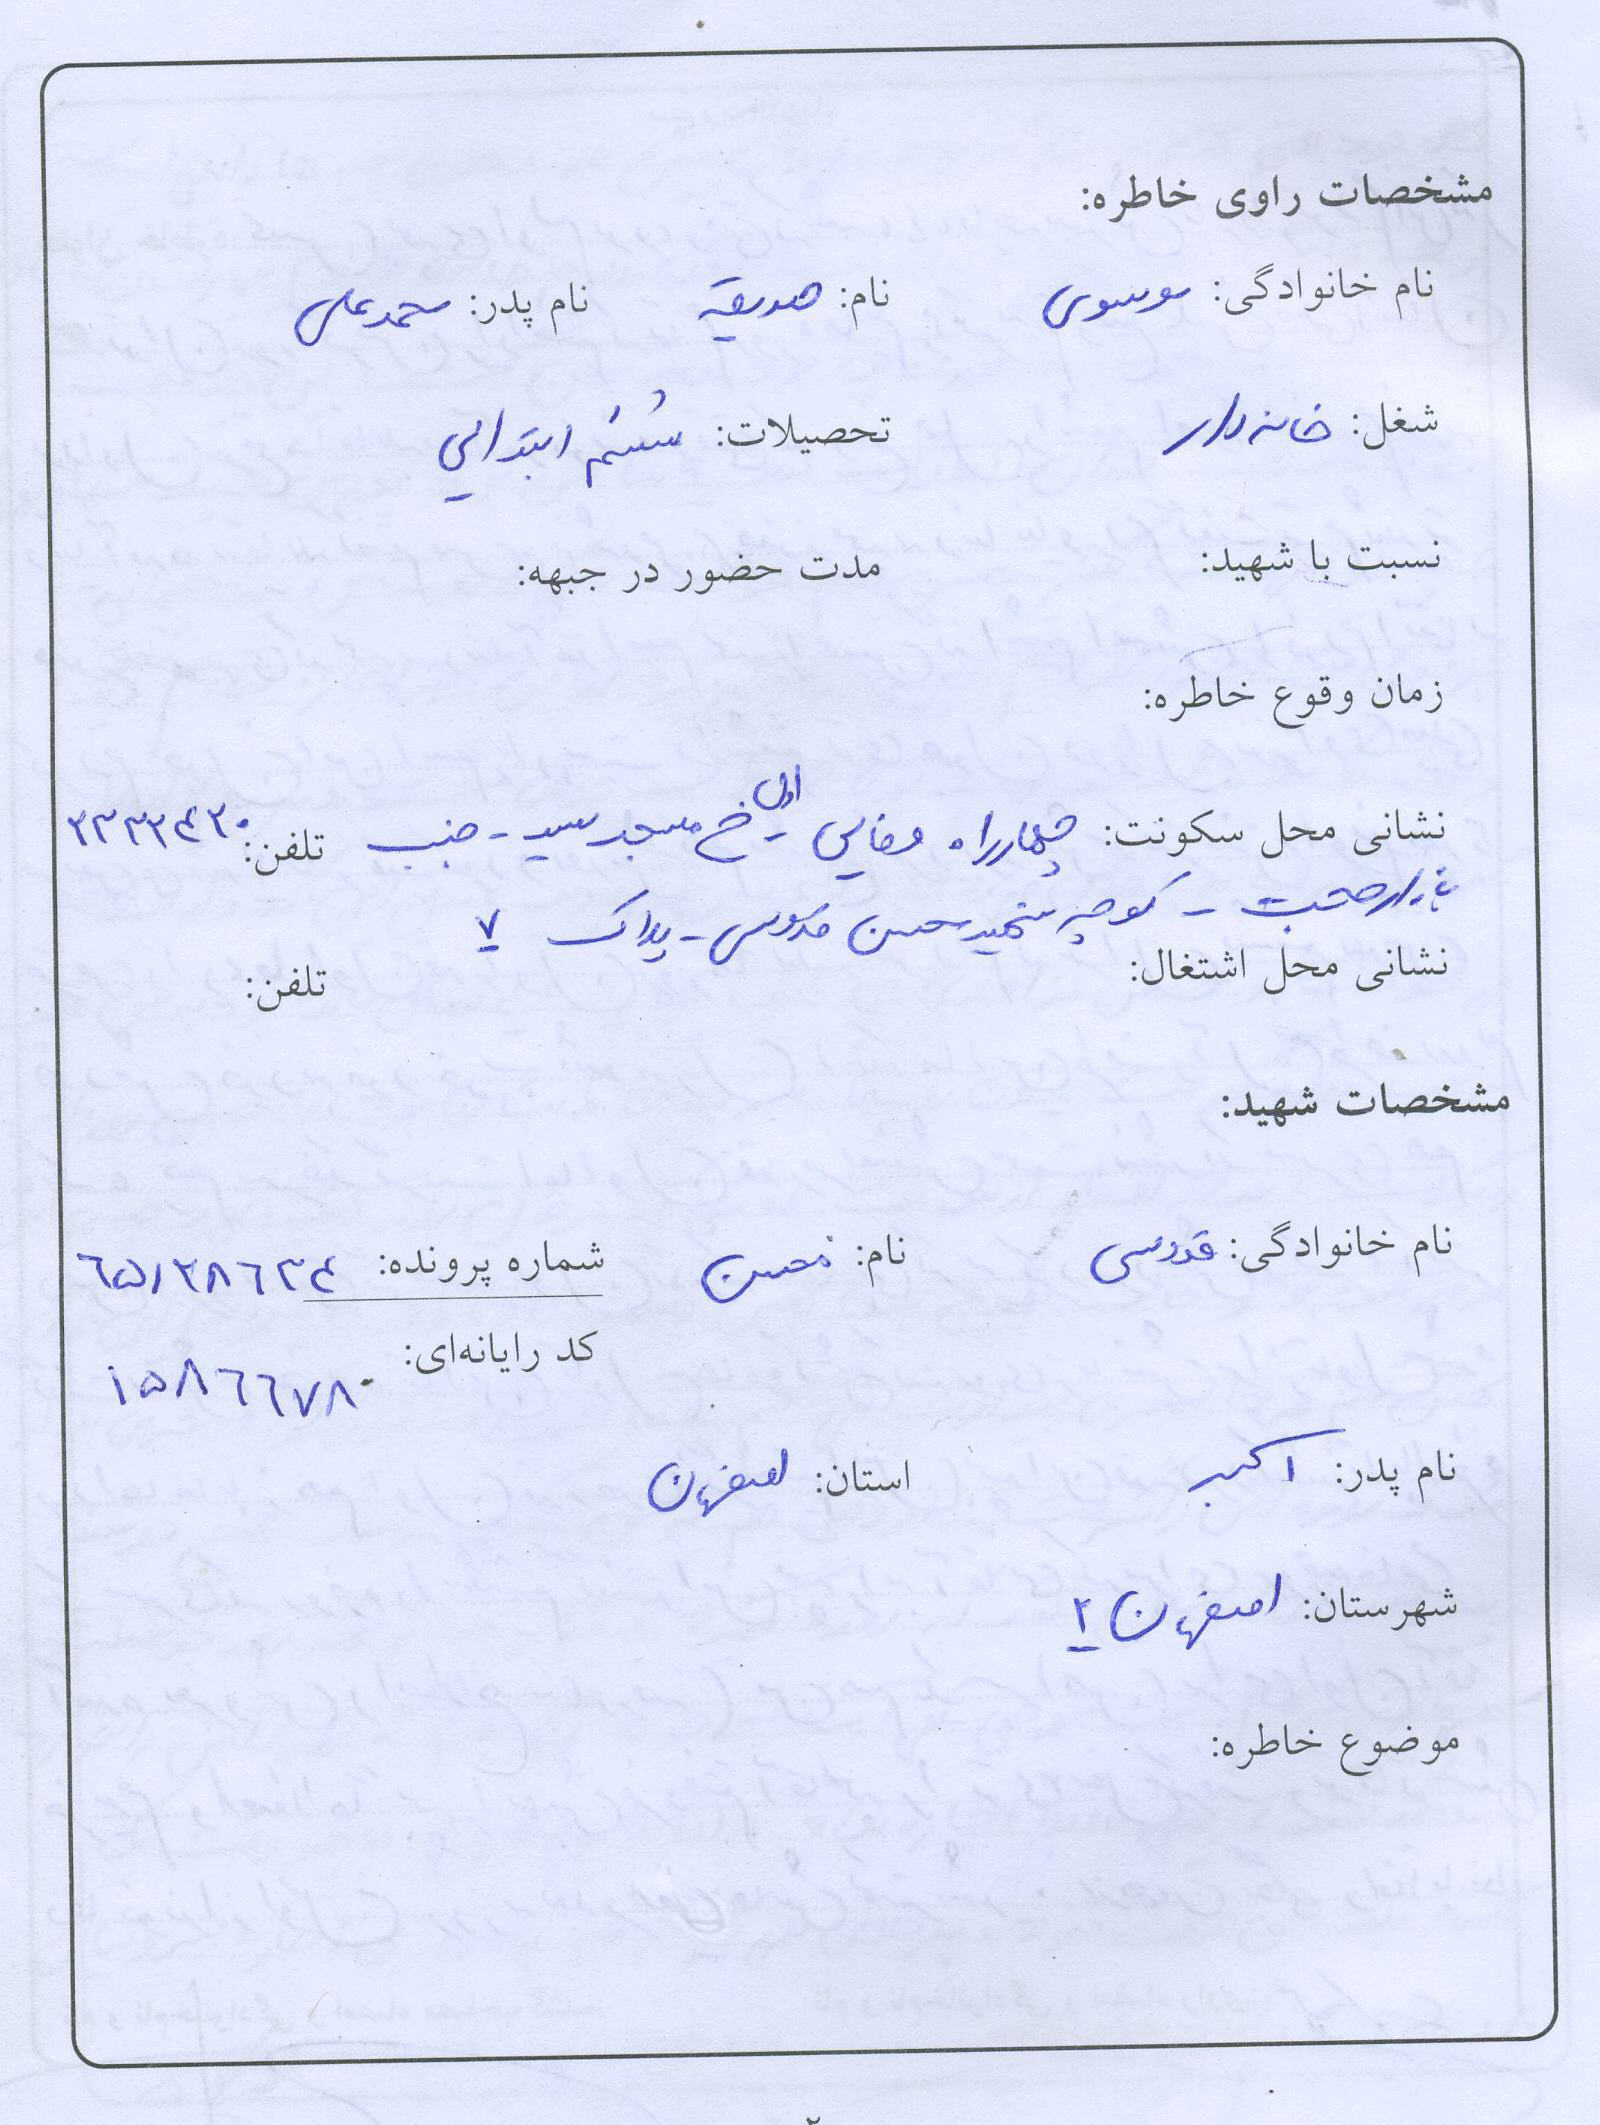 مشخصات راوی خاطره:
نام خانوادگی: موسوی نام: صدیقه نام پدر: محمدعلی
شغل: خانه دار تحصیلات: ششم ابتدایی
نسبت با شهید: مدت حضور در جبهه:
زمان وقوع خاطره:
نشانی محل سکونت: چهارراه وفایی اول خ مسجد سید - جنب تلفن: ۳۳۳۳۴۲۰
بازارصحبت - کوچه شهید محسن قدوسی - پلاک ۷
نشانی محل اشتغال: تلفن:
مشخصات شهید:
نام خانوادگی: قدوسی نام: محسن شماره پرونده: ۶۵/۲۸۶۳۴
کد رایانه‌ای: ۱۵۸۶۶۷۸۰
نام پدر: اکبر استان: اصفهان
شهرستان: اصفهان ۲
موضوع خاطره:
۲